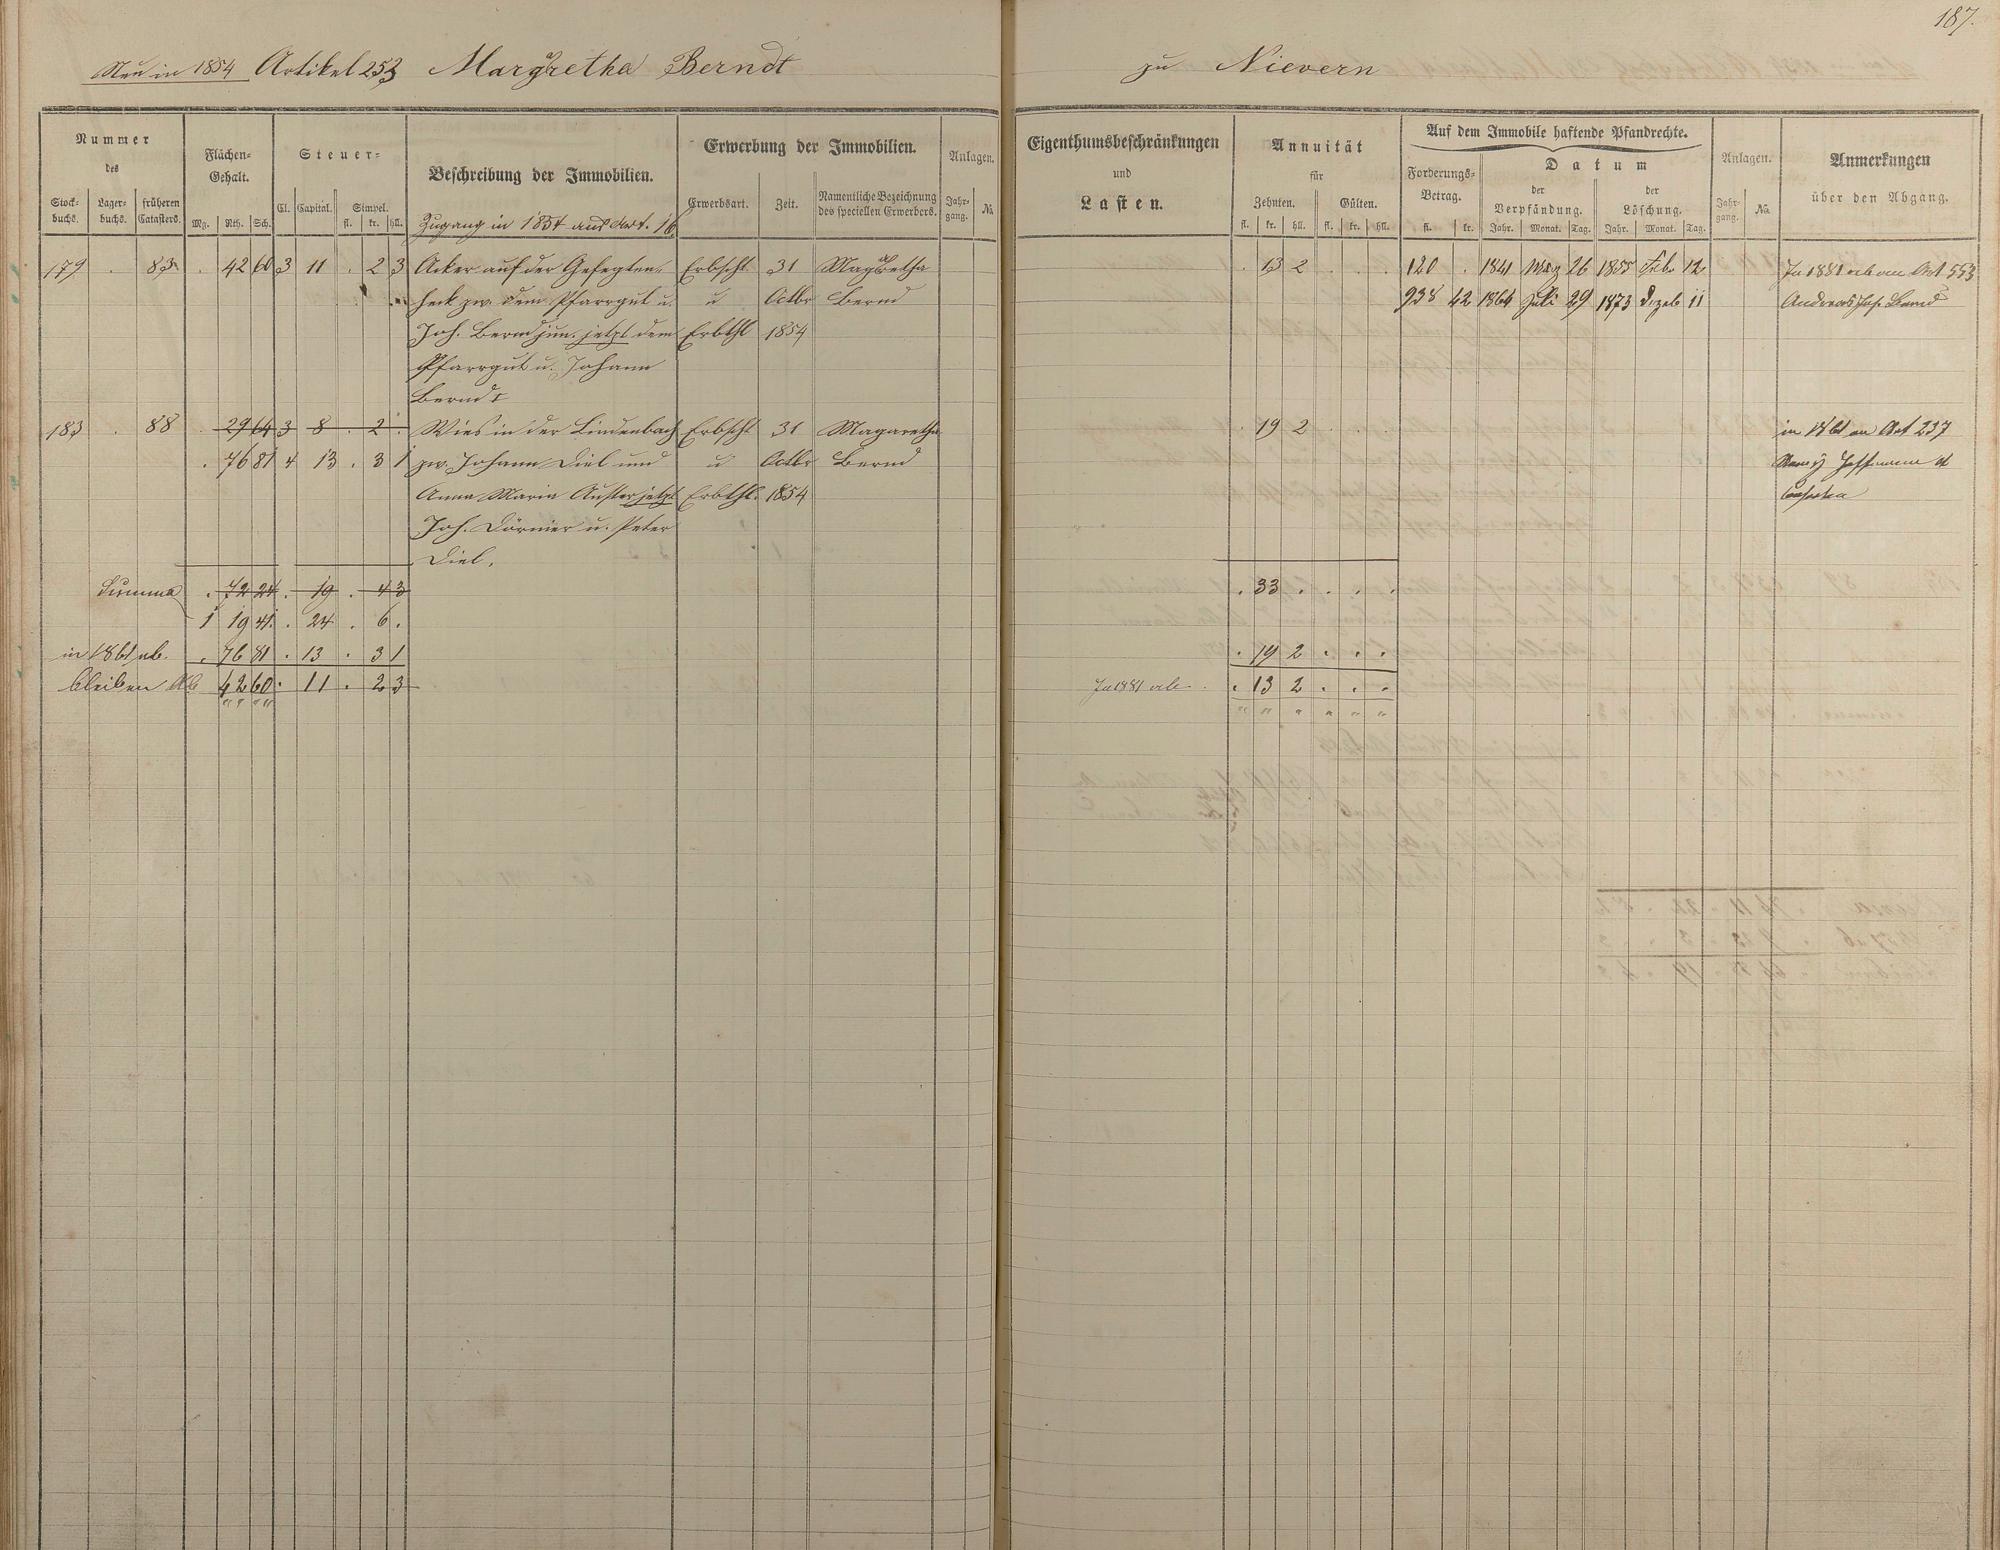 187.
Neu in 1854 Artikel 253 Margaretha Berndt zu Nievern
Nummer des
Flächen-Gehalt.
Steuer-
Beschreibung der Immobilien.
Erwerbung der Immobilien.
Anlagen.
Eigenthumsbeschränkungen und Lasten.
Annuität für
Auf dem Immobile haftende Pfandrechte.
Anlagen.
Anmerkungen über den Abgang.
Stock-buchs. Lager-buchs. früheren Catasters. Mg. Rth. Sch. Cl. Capital. Simpel. fl. kr. hll.
Zugang in 1854 aus Art. 16
Erwerbsart. Zeit. Namentliche Bezeichnung des speciellen Erwerbers. Jahr-gang. No.
Zehnten. Gülten. fl. kr. hll. fl. kr. hll.
Forderungs-Betrag. fl. kr. Datum der Verpfändung. Jahr. Monat. Tag. der Löschung. Jahr. Monat. Tag. Jahr-gang. No.
179 . 83 . 42 60 3 11 . 2 3 Acker auf der Gefegten- Erbscht 31 Magaretha . 13 2 . . . 120 . 1841 März 26 1855 Febr 12 In 1881 ab an Art 553
heck zw. dem Pfarrgut u. u Octbr Bernd 938 42 1864 Juli 29 1873 Dezeb 11 Andreas Jos. Bernd
Joh. Bernd jun. jetzt dem Erbthl 1854
Pfarrgut u. Johann
Berndt
183 . 88 . 29 64 3 8 . 2 . Wies in der Lindenbach Erbscht 31 Magaretha . 19 2 . . . in 1861 an Art 237
. 76 81 4 13 . 3 1 zw. Johann Diel und u Octbr Bernd
Anna Maria Auster jetzt Erbthl. 1854
Joh. Dörnier u. Peter
Diel.
Summa . 72 24 . 19 . 4 3 . 33 . . . .
1 19 41 . 24 . 6 .
in 1861 ab. . 76 81 . 13 . 3 1 . 19 2 . . .
bleiben 42 60 . 11 . 2 3 In 1881 ab . . 13 2 . . .